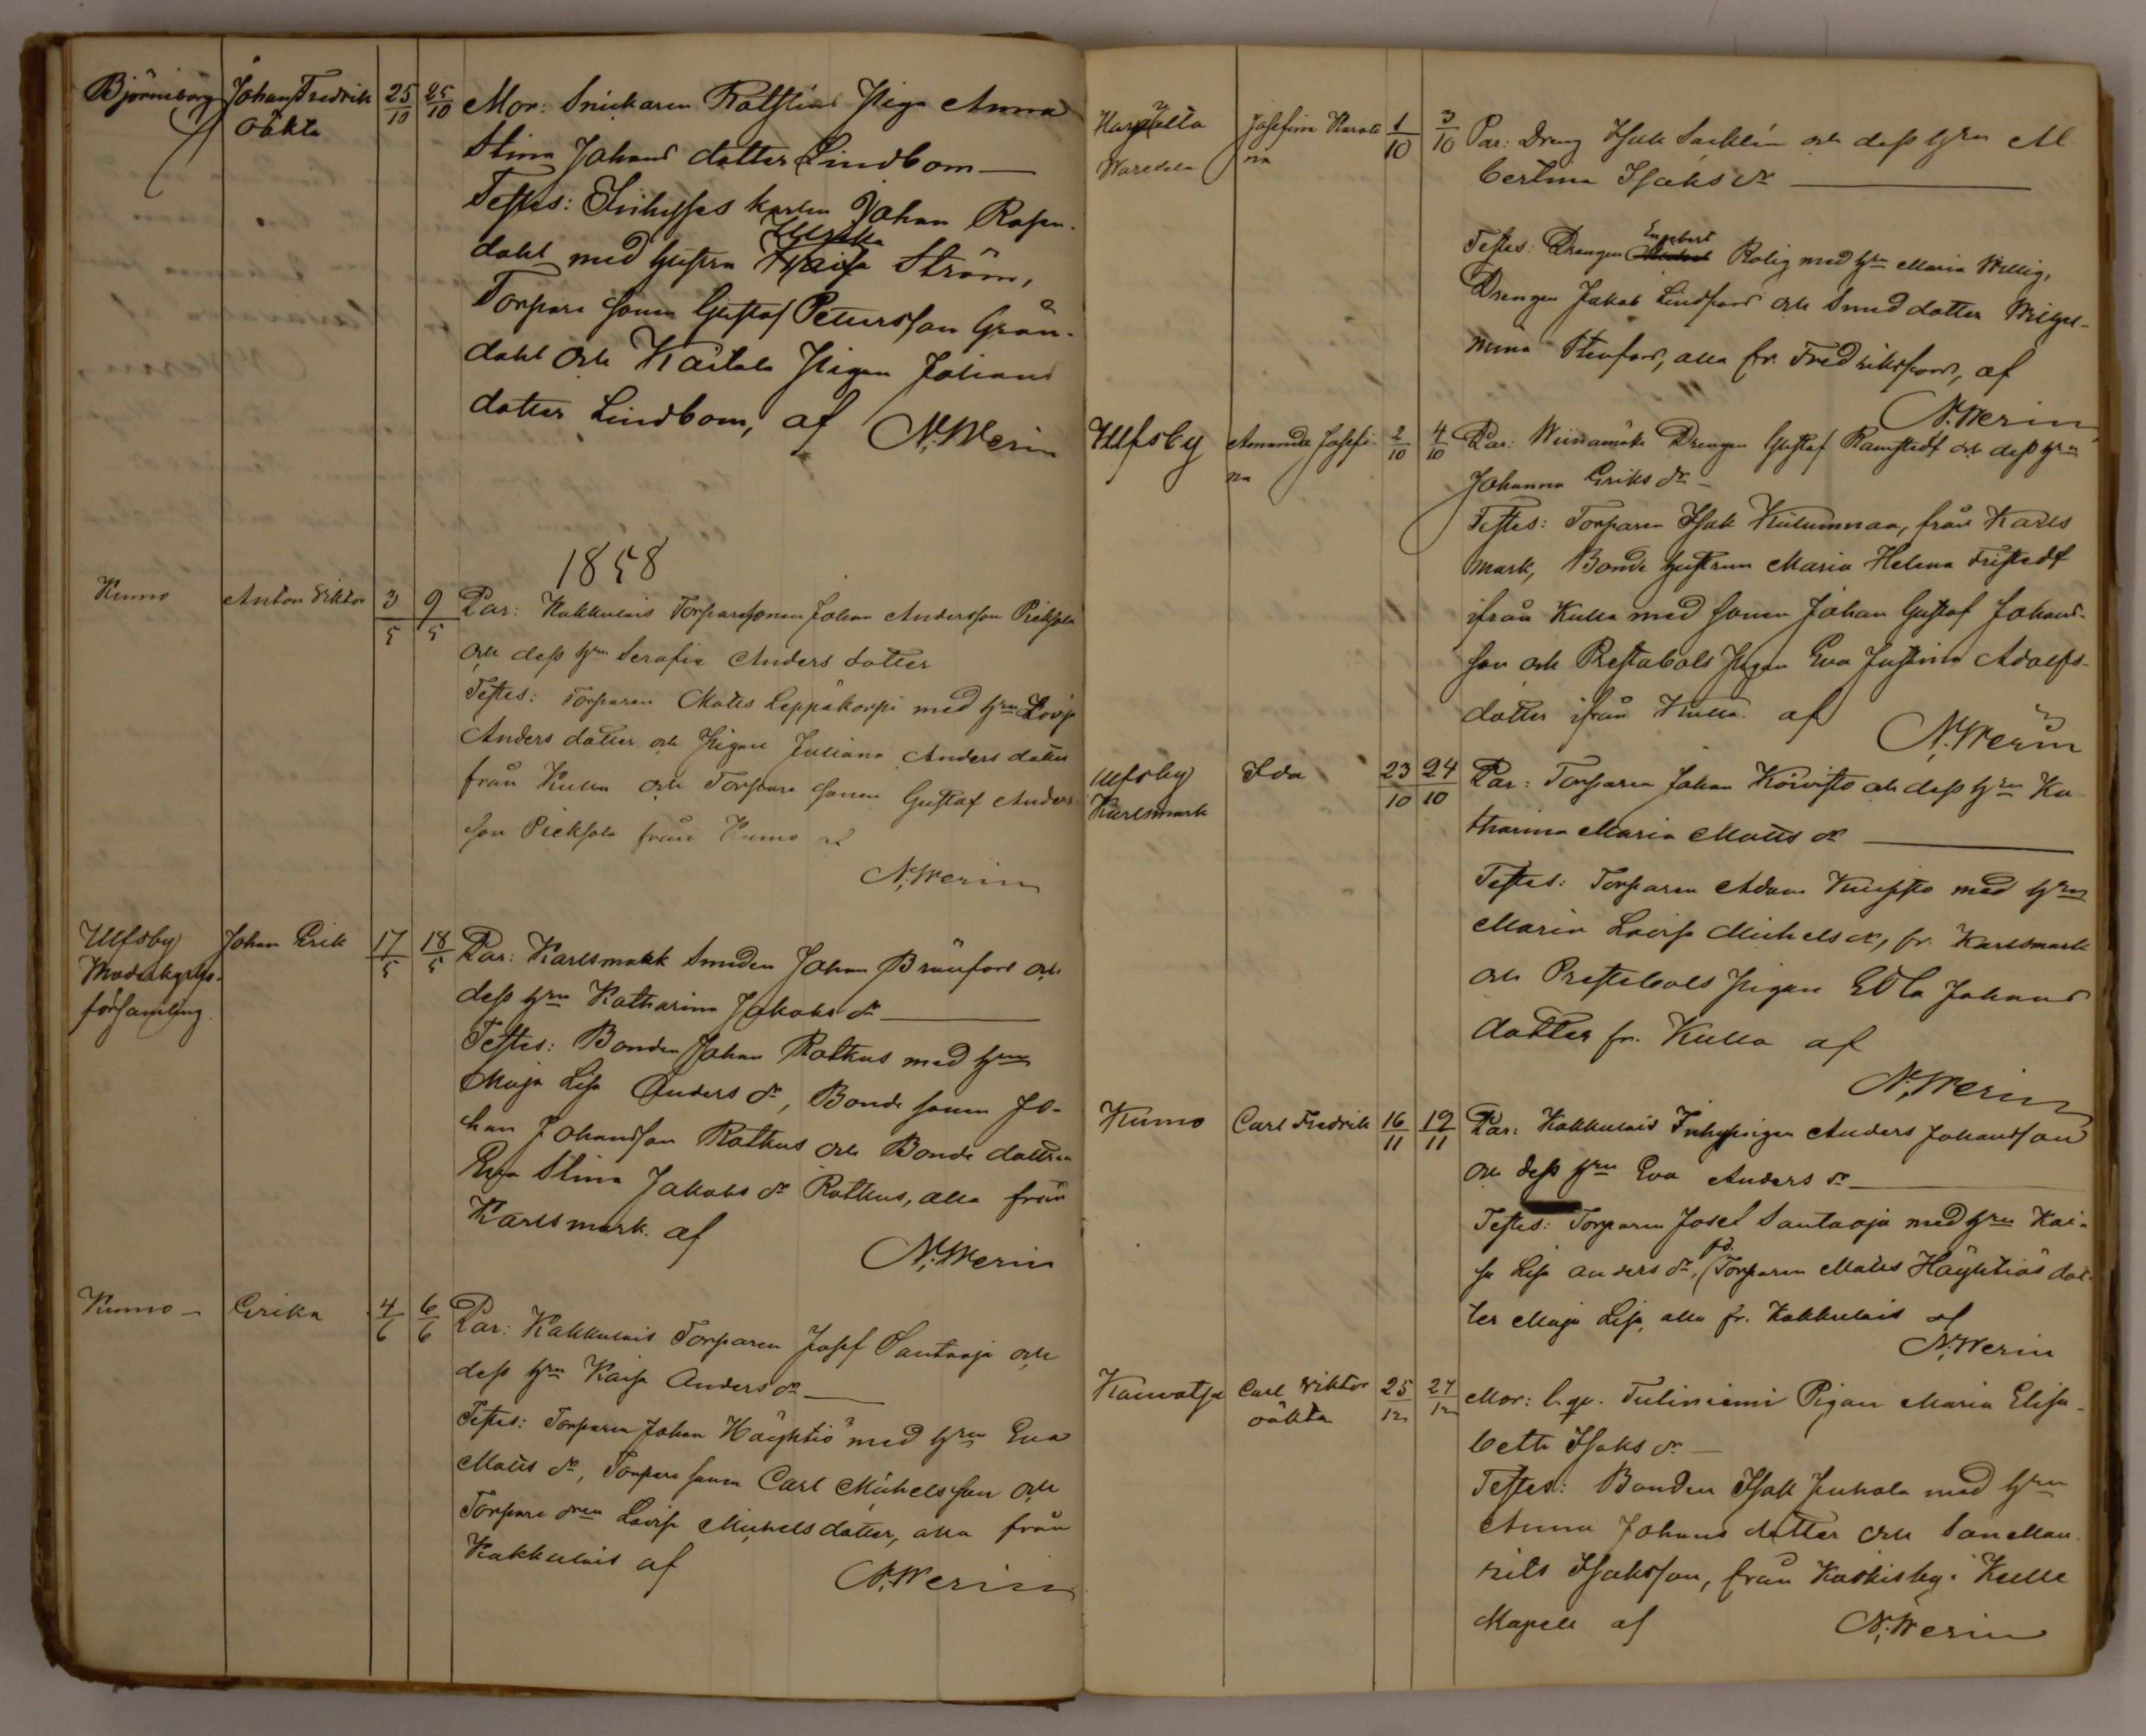 Björneborg Johan Fredrik 25/10 25/10 Mor: Snickaren Piga Anna
oäkta
Stina Johans dotter Lindbom
Testes: Inhyses karlen Johan Rosen-
dahl med hustru Ulrika Ström,
Torpare sonen Gustaf Petersson Grön-
dahl och Kaitala Pigan Johans
dotter Lindbom, af N. Werin
1858
Kumo Anton Viktor 3/5 9/5 Par: Kukkulais Torparesonen Johan Andersson Pieksola
och dess hru Serafia Anders dotter
Testes: Torparen Matts Leppäkorpi med hru Lovisa
Anders dotter och Pigan Juliana Anders dotter
från Kulla och Torpare sonen Gustaf Anders
son Pieksola från Kumo af
N. Werin
Ulfsby Johan Erik 17/5 18/5 Par: Karlsmark Smeden Johan Bränfors och
Moderkyrko-
församling
dess hru Katharina Jakobs dr
Testes: Bonden Johan Rotkus med hru
Maja Lisa Anders dr, Bonde sonen Jo-
han Johansson Rotkus och Bonde dottren
Eva Stina Jakobs dr Rotkus, alla från
Karlsmark. af
N. Werin
Kumo Erika 4/6 6/6 Par: Kakkulais Torparen Josef Santaoja och
dess hru Kaisa Anders dr
Testes: Torparen Johan Häyhtiö med hru Eva
Matts dr, Torpare sonen Carl Michelsson och
Torpare dren Lovisa Michels dotter, alla från
Kakkulais af
N. Werin
Harjavalta Josefina Karoli 1/10 3/10 Par: Dreng Isak Sacklén och dess hru Al
na
bertina Isaks dr
Testes: Drengen Engebert Rolig med hru Maria Willig,
Drengen Jakob Lindfors och Smed dotter Wilhel-
mina Stenfors, alla fr. Fredriksfors, af
N. Werin
Ulfsby Amanda Josefi- 2/10 4/10 Par: Wiinamäki Drengen Gustaf Ramstedt och dess hru
na
Johanna Eriks dr
Testes: Torparen Isak Kiilunmaa, från Karls
mark, Bonde hustrun Maria Helena Fristedt
ifrån Kulla med sonen Johan Gustaf Johans-
son och Prestabols Pigan Eva Justina Adolfs-
dotter ifrån Kulla. af
N. Werin
Ulfsby Ida 23/10 24/10 Par: Torparen Johan Koivisto och dess hru Ka
Karlsmark
tharina Maria Matts dr
Testes: Torparen Adam Knuppo med hru
Maria Lovisa Michels dr, fr. Karlsmark
och Prestebols Pigan Edla Johans
dotter fr. Kulla af
N. Werin
Kumo Carl Fredrik 16/11 19/11 Par: Kakkulais Inhysingen Anders Johansson
och dess hru Eva Anders dr
Testes: Torparen Josef Santaoja med hru Kai-
sa Lisa Anders dr, fd. Torparen Matts Häyhtiös dot-
ter Maja Lisa, alla fr. Kakkulais af
N. Werin
Kauvatsa Carl Viktor 25/12 27/12 Mor: Tuliniemi Pigan Maria Elisa-
oäkta
beth Isaks dr
Testes: Bonden Isak Juhola med hru
Anna Johans dotter och Son Mau-
ritz Isaksson, från Koskisby i Kulla
Kapell af
N. Werin